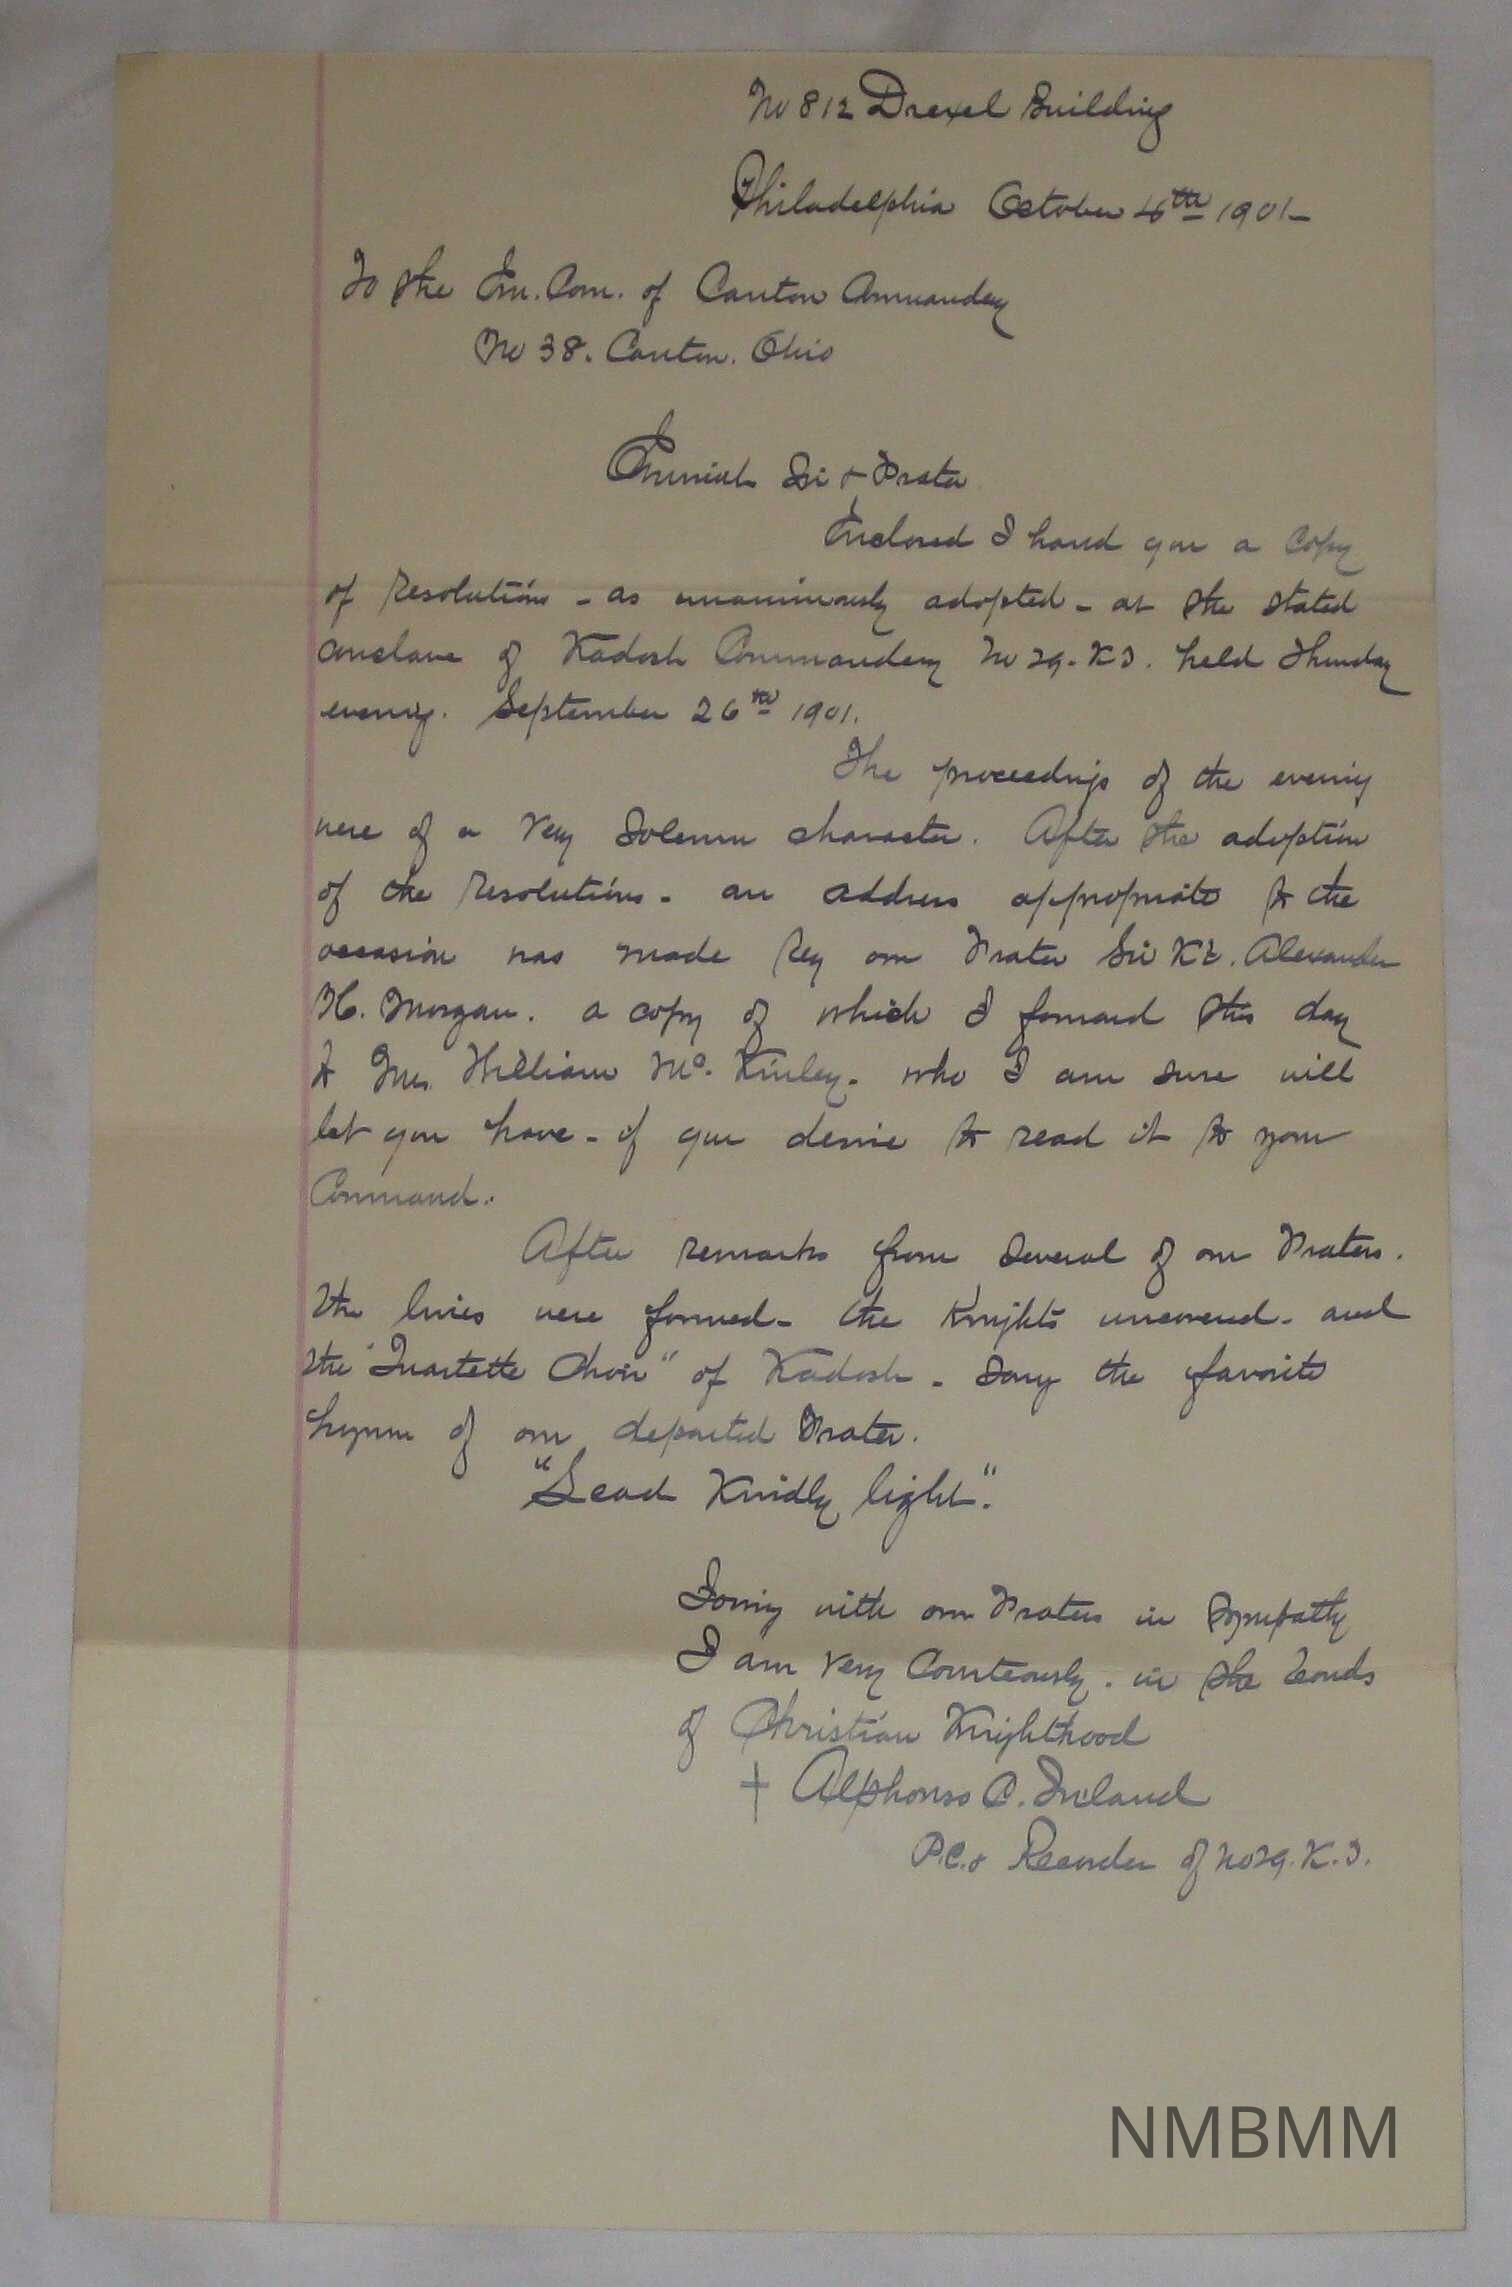 No 812 Drexel Building
Philadelphia October 4th 1901-
To the Em. Com. of Canton Commandery
No 38. Canton. Ohio
Eminent Sir & Frater
Enclosed I hand you a Copy
of resolutions - as unanimously adopted - at the stated
conclave of Kadosh Commandery No 29. K.T. held Thursday
evening. September 26th 1901.
The proceedings of the evening
were of a very solemn character. After the adoption
of the resolutions - an address appropriate to the
occasion was made by our Frater Sir Kt. Alexander
H. Morgan. a copy of which I forward this day
to Mrs. William Mc. Kinley - who I am sure will
let you have - if you desire to read it to your
Command.
After remarks from several of our Fraters.
the lines were formed - the Knights uncovered - and
the "Quartette Choir" of Kadosh - sang the favorite
hymn of our departed Frater.
"Lead Kindly light".
Joining with our Fraters in sympathy
I am very Courteously. in the bonds
of Christian Knighthood
+ Alphonso C. Ireland
P.C. & Recorder of No 29. K.T.
NMBMM